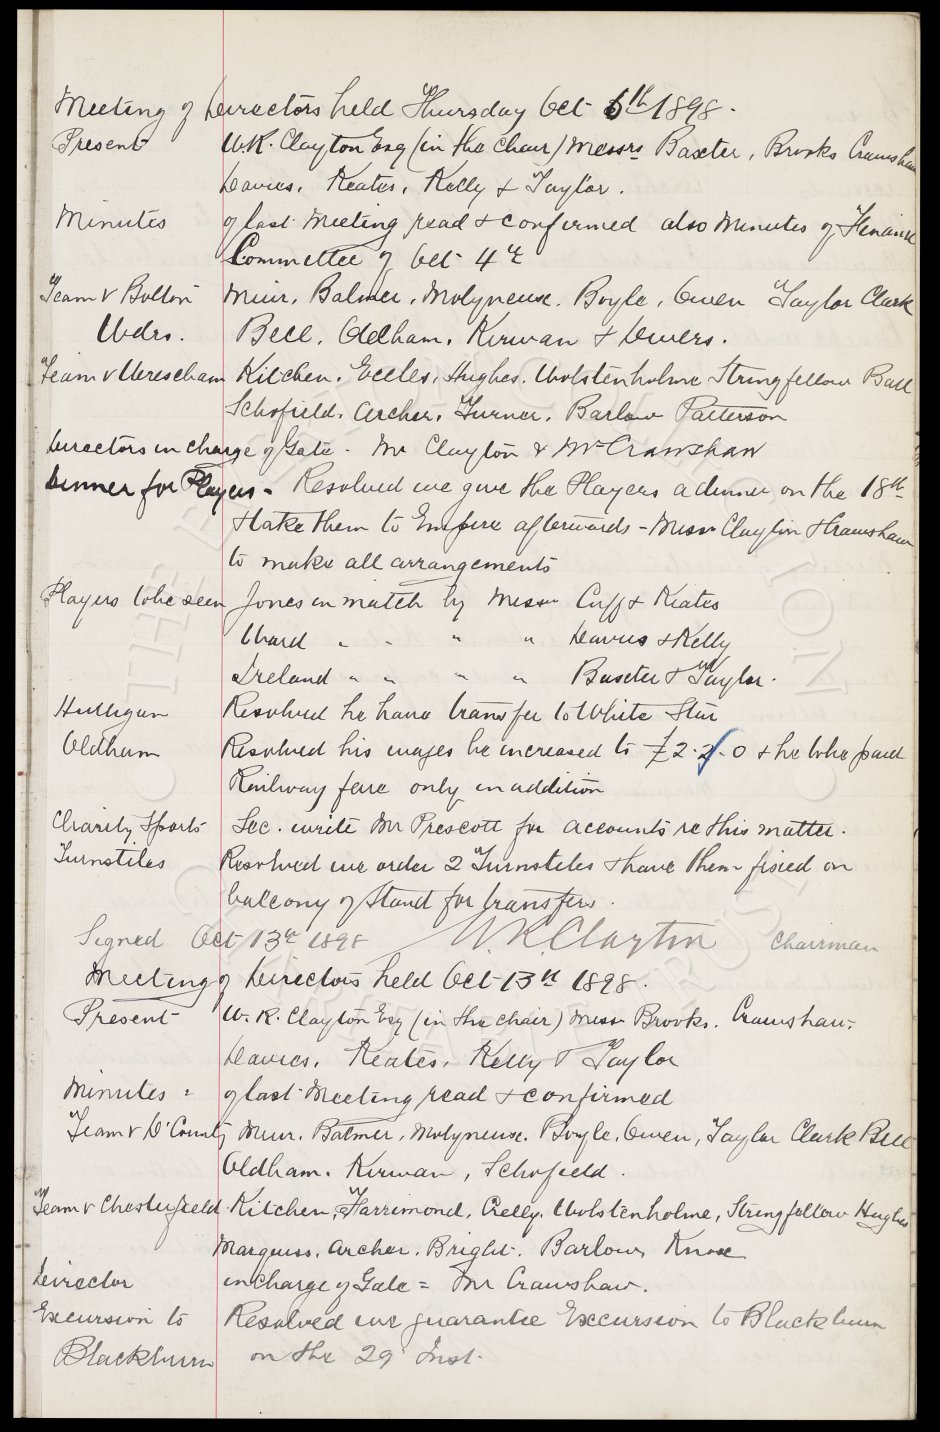 Meeting of Directors held Thursday Oct 6th 1898.
Present W.R. Clayton Esq (in the Chair) Messrs Baxter, Brooks Crawshaw
Davies, Keates, Kelly & Taylor.
Minutes of last Meeting read & confirmed also Minutes of Finance
Committee of Oct 4th
Team v Bolton Muir, Balmer, Molyneux, Boyle, Owen Taylor Clark
Wdrs. Bell, Oldham, Kirwan & Divers.
Team v Kitchen, Eccles, Hughes, Wolstenholme Stringfellow Ball
Schofield, Archer, Turner, Barlow Patterson
Directors in charge of Gate. Mr Clayton & Mr Crawshaw
Dinner for Players - Resolved we give the Players a dinner on the 18th
& take them to Empire afterwards - Messrs Clayton & Crawshaw
to make all arrangements
Players to be seen Jones in match by Messrs Cuff & Keates
Ward " " " " Davies & Kelly
Ireland " " " " Baxter & Taylor.
Hulligan Resolved he have transfer to White Star
Oldham Resolved his wages be increased to £2.2.0 & he to be paid
Railway fare only in addition
Charity Sports Sec. write Mr Prescott for accounts re this matter.
Turnstiles Resolved we order 2 Turnstiles & have them fixed on
balcony of Stand for transfers.
Signed Oct 13th 1898 W.R. Clayton Chairman
Meeting of Directors held Oct 13th 1898.
Present W.R. Clayton Esq (in the chair) Messrs Brooks, Crawshaw,
Davies, Keates, Kelly & Taylor
Minutes = of last Meeting read & confirmed
Team v D'County Muir, Balmer, Molyneux, Boyle, Owen, Taylor Clark Bell
Oldham, Kirwan, Schofield.
Team v Chesterfield Kitchen, Farrimond, Crelly, Wolstenholme, Stringfellow Hughes
Marquiss, Archer, Bright, Barlow, Knox
Director in charge of Gate = Mr Crawshaw.
Excursion to Resolved we guarantee Excursion to Blackburn
Blackburn on the 29 Inst.